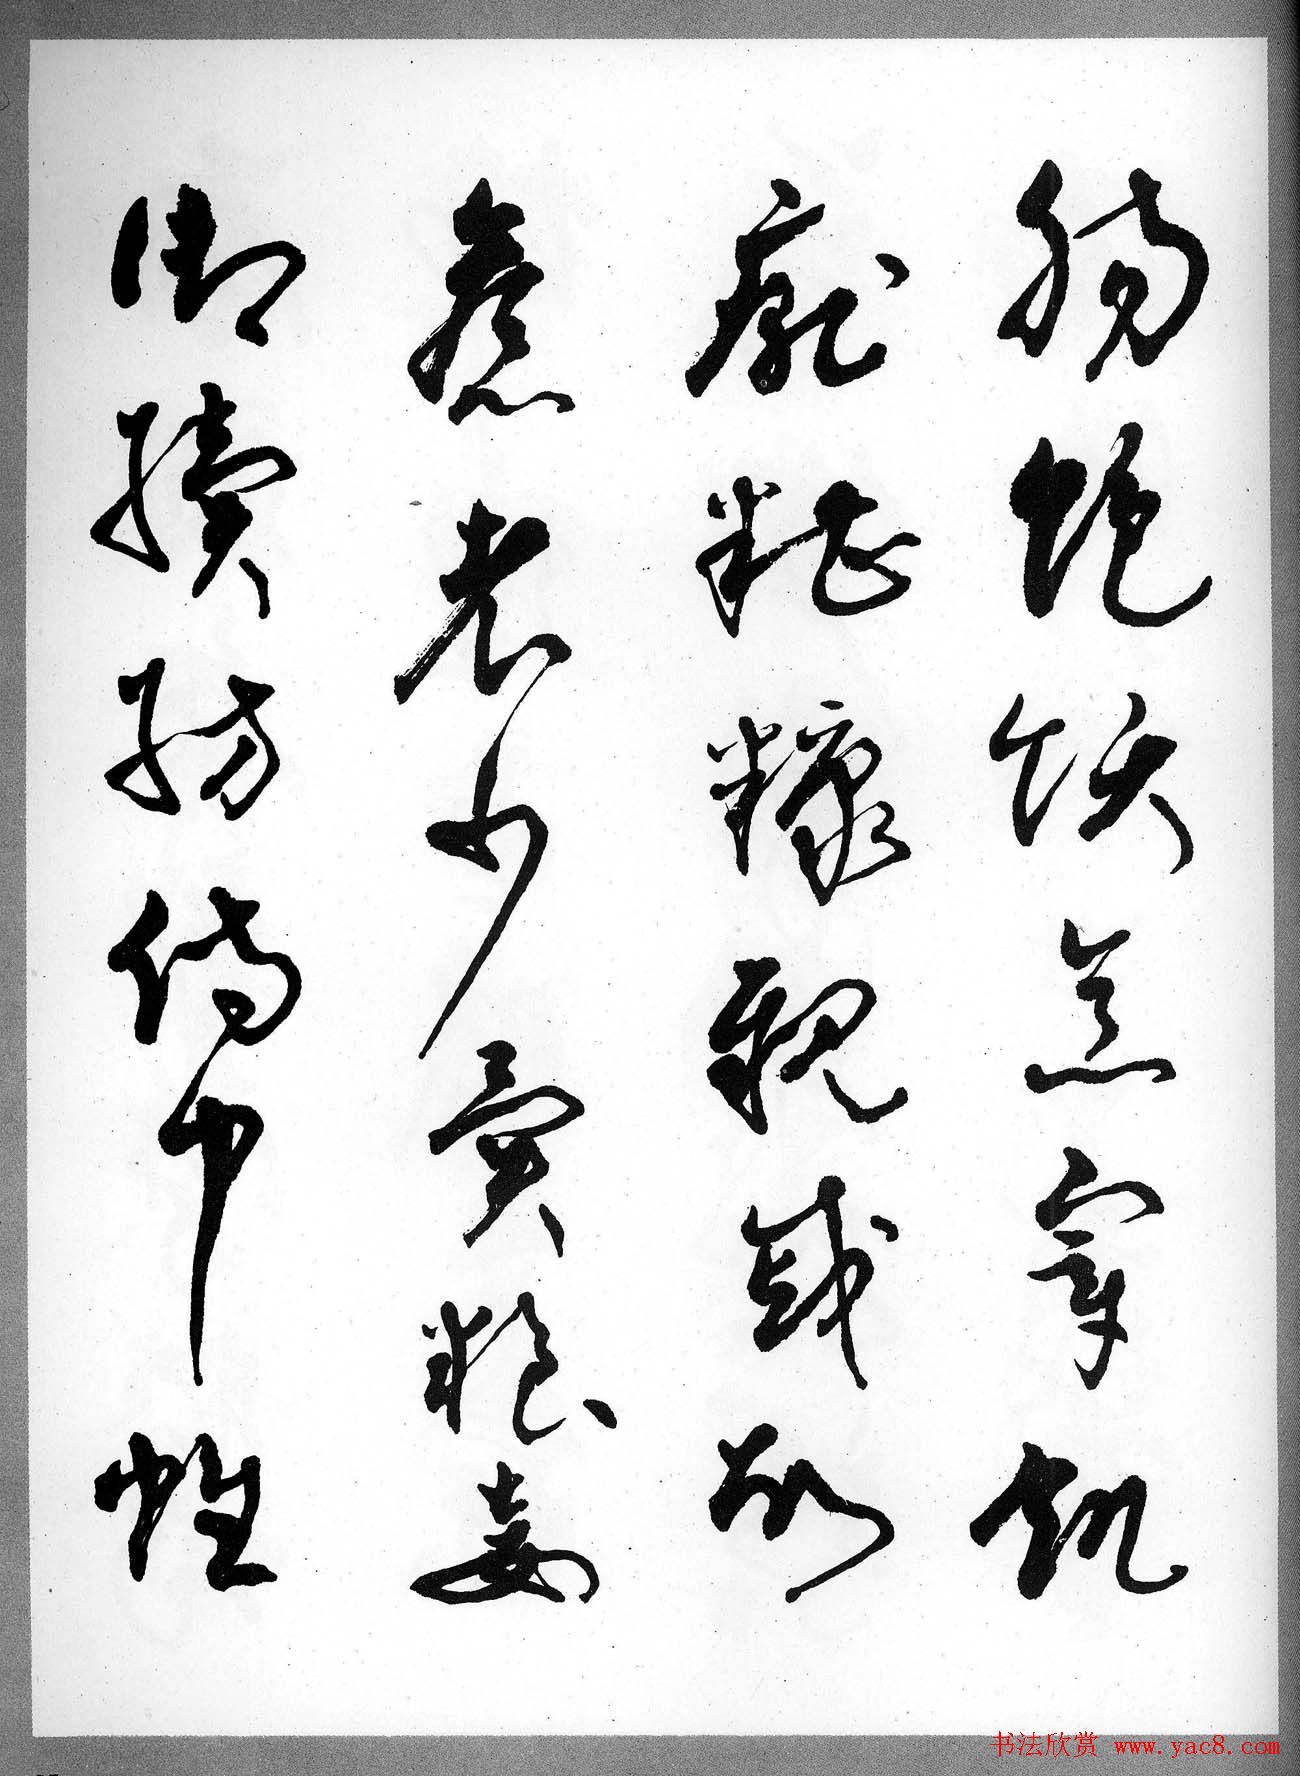 腸飽飫烹宰飢
厭糟糠親戚故
舊老少異糧妾
御績紡侍巾帷
书法欣赏 www.yac8.com